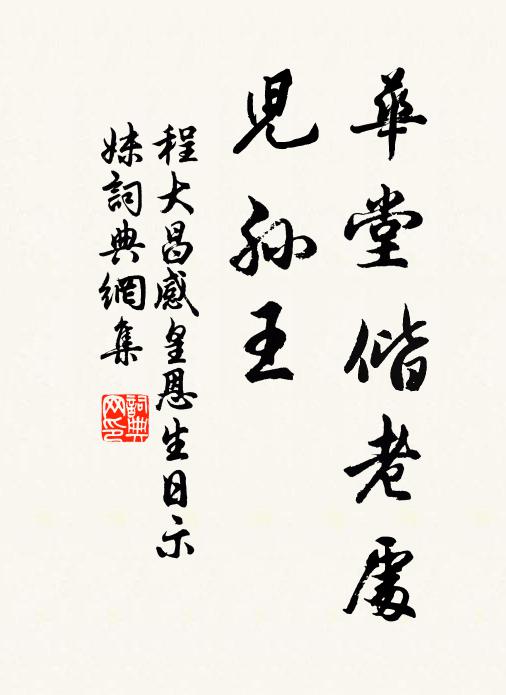 華堂偕老處
兒孫王
程大昌感皇恩生日示
妹詞典網集
詞典
网印